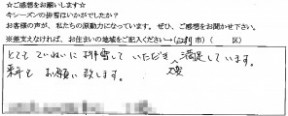 ☆ご感想をお願いします☆
今シーズンの排雪はいかがでしたか？
お客様の声が、私たちの原動力になっています。ぜひ、ご感想をお聞かせ下さい。
※差支えなければ、お住まいの地域をご記入ください→( 市)( 区)
とても ていねいに 排雪して いただき 大変 満足しています。
来年も お願い致します。